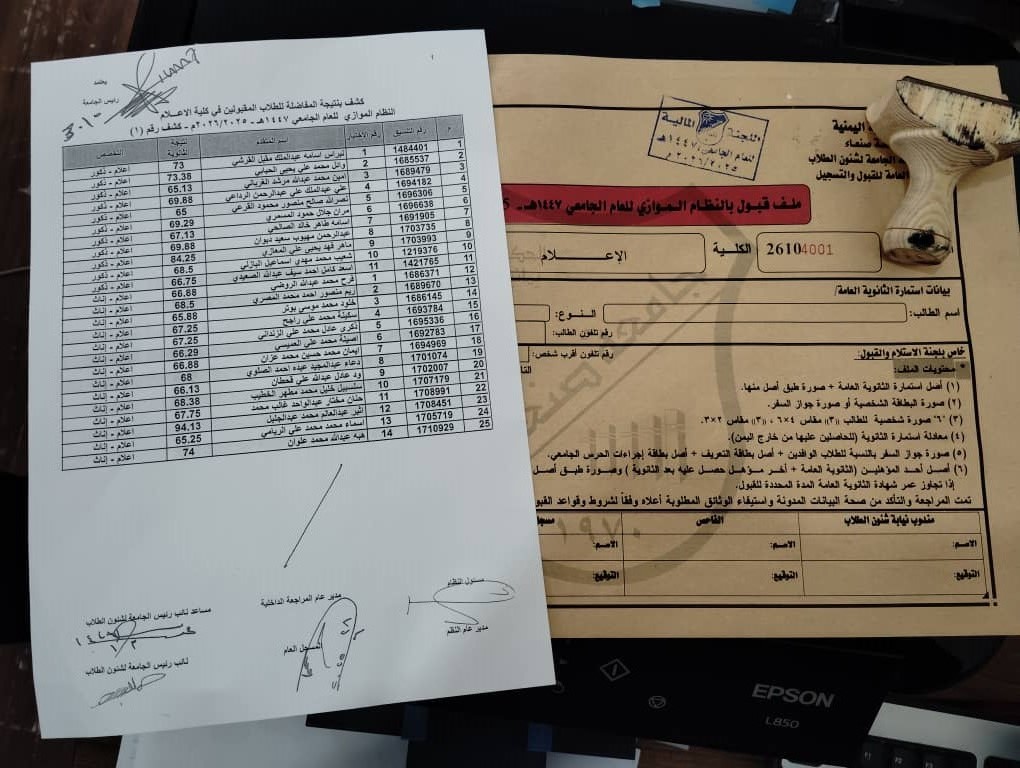 يعتمد
رئيس الجامعة
كشف بنتيجة المفاضلة للطلاب المقبولين في كلية الاعلام
النظام الموازي للعام الجامعي ١٤٤٧هـ - ٢٠٢٦/٢٠٢٥م - كشف رقم (١)
م رقم التنسيق رقم الاختبار اسم المتقدم نتيجة الثانوية التخصص
1 1484401 1 نبراس اسامه عبدالملك مقبل القرشي 73 اعلام - ذكور
2 1685537 2 وائل محمد علي يحيى الحبابي 73.38 اعلام - ذكور
3 1689479 3 امين محمد عبدالله مرشد الغرباني 65.13 اعلام - ذكور
4 1694182 4 علي عبدالملك علي عبدالرحمن الرداعي 69.88 اعلام - ذكور
5 1696306 5 نصرالله صالح منصور محمود القرعي 65 اعلام - ذكور
6 1696638 6 مران جلال حمود المسمري 69.29 اعلام - ذكور
7 1691905 7 اسامه طاهر خالد الصالحي 67.13 اعلام - ذكور
8 1703735 8 عبدالرحمن مهيوب سعيد ديوان 69.88 اعلام - ذكور
9 1703993 9 ماهر فهد يحيى علي المعازي 84.25 اعلام - ذكور
10 1219376 10 شعيب محمد مهدي اسماعيل البازلي 68.5 اعلام - ذكور
11 1421765 11 اسعد كامل احمد سيف عبدالله الصعيدي 66.75 اعلام - ذكور
12 1686371 1 فرح محمد عبدالله الروضي 66.88 اعلام - إناث
13 1689670 2 ريم منصور احمد محمد المصري 68.5 اعلام - إناث
14 1686145 3 خلود محمد موسى بوتر 65.88 اعلام - إناث
15 1693784 4 سكينة محمد علي راجح 67.25 اعلام - إناث
16 1695336 5 ذكرى عادل محمد علي الزنداني 67.25 اعلام - إناث
17 1692783 6 اصيلة محمد علي العميسي 66.29 اعلام - إناث
18 1694969 7 ايمان محمد حسين محمد عزان 66.88 اعلام - إناث
19 1701074 8 دعاء عبدالمجيد عبده احمد الصلوي 68 اعلام - إناث
20 1702007 9 ود عادل عبدالله علي قحطان 66.13 اعلام - إناث
21 1707179 10 سلسبيل خليل محمد مطهر الخطيب 68.38 اعلام - إناث
22 1708991 11 حنان مختار عبدالواحد غالب محمد 67.75 اعلام - إناث
23 1708451 12 اثير عبدالعالم محمد عبدالجليل 94.13 اعلام - إناث
24 1705719 13 اسماء محمد محمد علي الريامي 65.25 اعلام - إناث
25 1710929 14 هبه عبدالله محمد علوان 74 اعلام - إناث
مسئول النظام
مدير عام النظم
مدير عام المراجعة الداخلية
المسجل العام
مساعد نائب رئيس الجامعة لشئون الطلاب
نائب رئيس الجامعة لشئون الطلاب
اللجنة المالية
للعام الجامعي ١٤٤٧هـ
٢٠٢٦/٢٠٢٥م
اليمنية
صنعاء
الجامعة لشئون الطلاب
العامة للقبول والتسجيل
ملف قبول بالنظام الموازي للعام الجامعي ١٤٤٧هـ
26104001
الكلية
الإعلام
بيانات استمارة الثانوية العامة/
اسم الطالب:
النوع:
رقم تلفون الطالب:
رقم تلفون أقرب شخص:
خاص بلجنة الاستلام والقبول:
* محتويات الملف:
(١) أصل استمارة الثانوية العامة + صورة طبق أصل منها.
(٢) صورة البطاقة الشخصية أو صورة جواز السفر.
(٣) "٦" صورة شخصية للطالب ((٣)) مقاس ٤×٦ + ((٣)) مقاس ٢×٣.
(٤) معادلة استمارة الثانوية (للحاصلين عليها من خارج اليمن).
(٥) صورة جواز السفر بالنسبة للطلاب الوافدين + أصل بطاقة التعريف + أصل بطاقة إجراءات الحرس الجامعي.
(٦) أصل أحد المؤهلين (الثانوية العامة + أخر مؤهل حصل عليه بعد الثانوية) وصورة طبق أصل
إذا تجاوز عمر شهادة الثانوية العامة المدة المحددة للقبول.
تمت المراجعة والتأكد من صحة البيانات المدونة واستيفاء الوثائق المطلوبة أعلاه وفقاً لشروط وقواعد القبو
مندوب نيابة شئون الطلاب الفاحص مسجل
الاسم: الاسم: الاسم:
التوقيع: التوقيع: التوقيع:
١٩٧٠
EPSON
L850